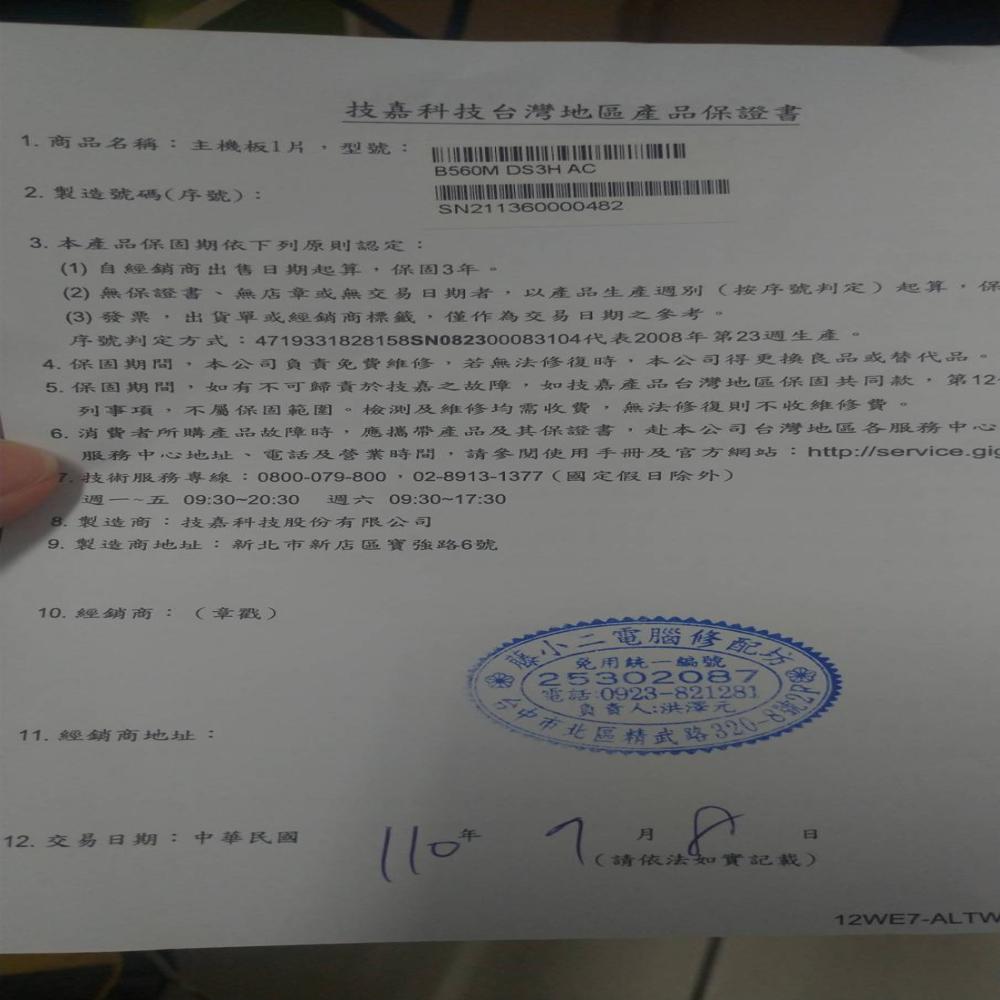 技嘉科技台灣地區產品保證書
1. 商品名稱：主機板1片，型號：
B560M DS3H AC
2. 製造號碼(序號)：
SN211360000482
3. 本產品保固期依下列原則認定：
(1) 自經銷商出售日期起算，保固3年。
(2) 無保證書、無店章或無交易日期者，以產品生產週別（按序號判定）起算，保
(3) 發票，出貨單或經銷商標籤，僅作為交易日期之參考。
序號判定方式：4719331828158SN082300083104代表2008年第23週生產。
4. 保固期間，本公司負責免費維修，若無法修復時，本公司得更換良品或替代品。
5. 保固期間，如有不可歸責於技嘉之故障，如技嘉產品台灣地區保固共同款，第12
列事項，不屬保固範圍。檢測及維修均需收費，無法修復則不收維修費。
6. 消費者所購產品故障時，應攜帶產品及其保證書，赴本公司台灣地區各服務中心
服務中心地址、電話及營業時間，請參閱使用手冊及官方網站：http://service.gig
7. 技術服務專線：0800-079-800，02-8913-1377（國定假日除外）
週一~五 09:30~20:30 週六 09:30~17:30
8. 製造商：技嘉科技股份有限公司
9. 製造商地址：新北市新店區寶強路6號
10. 經銷商：（章戳）
藤小二電腦修配坊
免用統一編號
25302087
電話:0923-821281
負責人:洪澤元
台中市北區精武路320-8號2F
11. 經銷商地址：
12. 交易日期：中華民國 110年 7月 8日
（請依法如實記載）
12WE7-ALTW